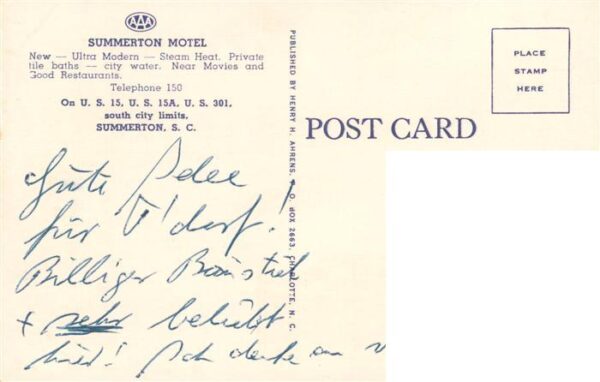 AAA
SUMMERTON MOTEL
New — Ultra Modern — Steam Heat. Private
tile baths — city water. Near Movies and
Good Restaurants.
Telephone 150
On U. S. 15, U. S. 15A, U. S. 301,
south city limits,
SUMMERTON, S. C.
PUBLISHED BY HENRY H. AHRENS, P. O. BOX 2663, CHARLOTTE, N. C.
PLACE
STAMP
HERE
POST CARD
Gute
für V'dorf!
Billiger
+ sehr beliebt
hier! Ich denke an